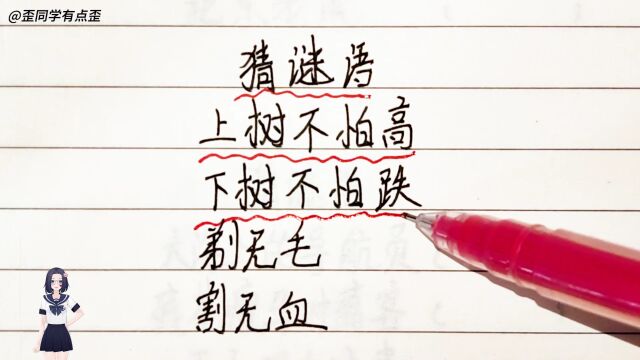 @歪同学有点歪
猜谜语
上树不怕高
下树不怕跌
剃无毛
割无血